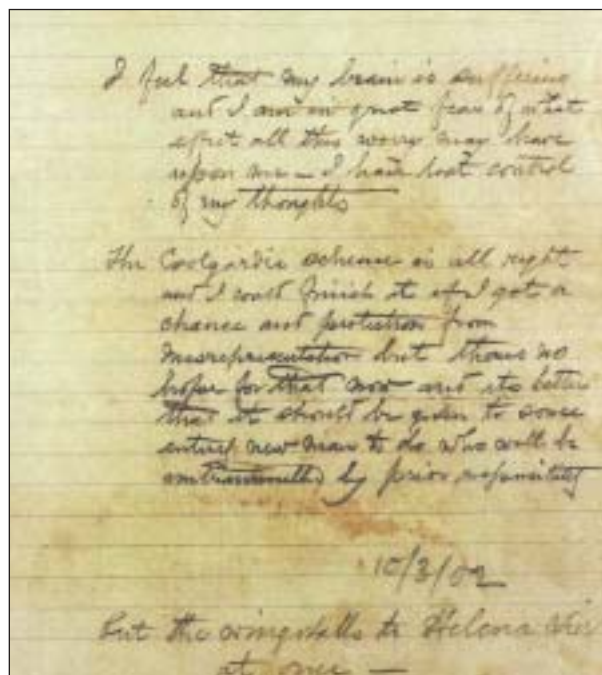 I feel that my brain is suffering
and I am in great fear of what
effect all this worry may have
upon me — I have lost control
of my thoughts
The Coolgardie scheme is all right
and I could finish it if I got a
chance and protection from
misrepresentation but there's no
hope for that now and its better
that it should be given to some
entirely new man to do who will be
untrammelled by prior responsibility
10/3/02
Put the wingwalls to Helena Weir
at once —